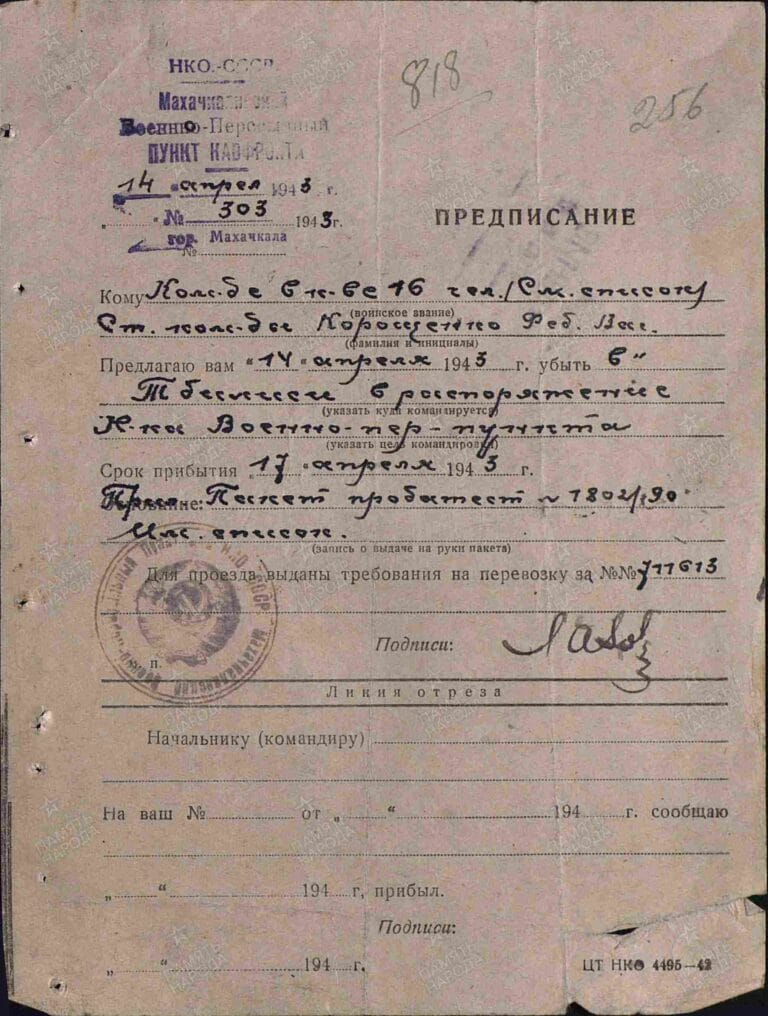 НКО.-СССР.
818
256
Махачкалинский
Военно-Пересыльный
ПУНКТ КАВФРОНТА
14 " апрел 1943 г.
" № 303 1943г.
гор. Махачкала
№
ПРЕДПИСАНИЕ
Кому Ком-де в к-ве 16 чел. /См. список/
(воинское звание)
Ст. ком-ды Корощенко Фед. Вас.
(фамилия и инициалы)
Предлагаю вам "14" апреля 1943 г. убыть в"
Тбилиси в распоряжение
(указать куда командируется)
Н-ка Военно-пер-пункта
(указать цель командировки)
Срок прибытия 17 апреля 1943 г.
Пакет продатест № 1802/190
Им. список.
(запись о выдаче на руки пакета)
Для проезда выданы требования на перевозку за №№ 711613
Подписи:
м. п.
Линия отреза
Начальнику (командиру)
На ваш № от „ “ 194 г. сообщаю
„ “ 194 г, прибыл.
Подписи:
„ “ 194 г.
ЦТ НКО 4495—42